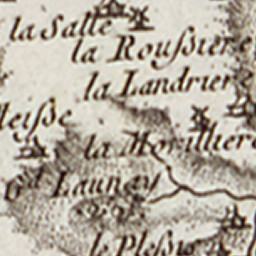 la Salle
la Roußiere
la Landriere
leiße
la Morilliere
Gd Launay
le Pleßis